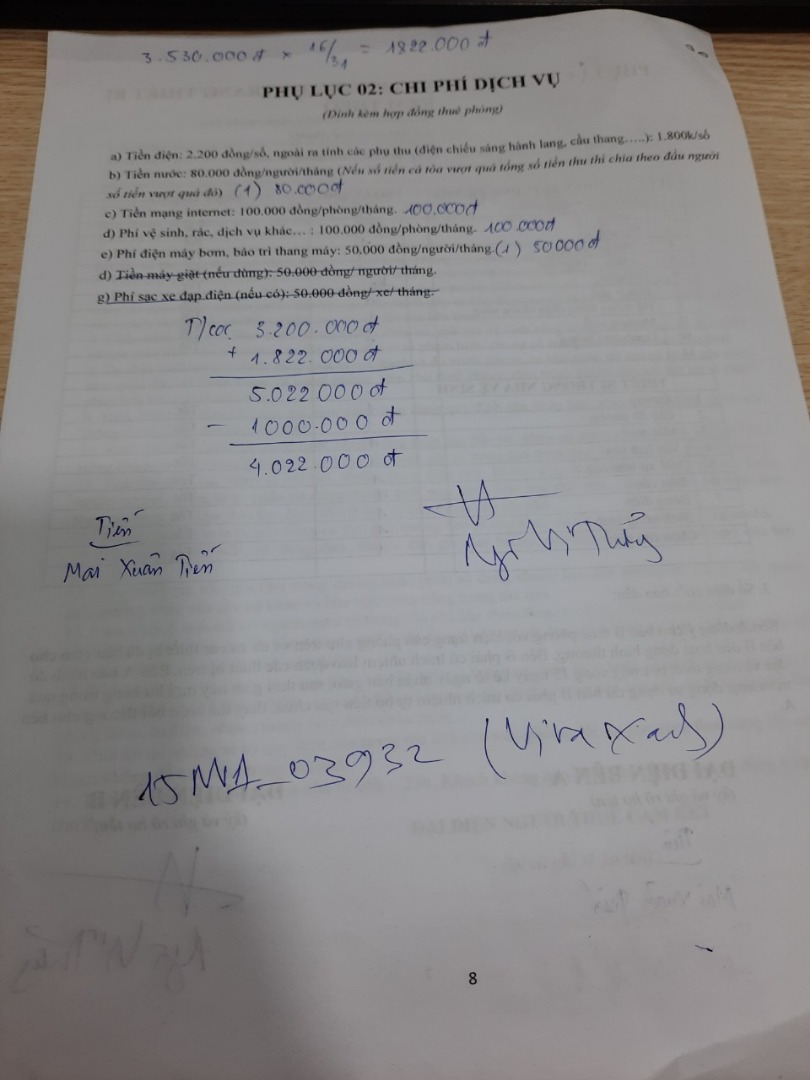 3.530.000đ × 16/31 = 1822.000đ
PHỤ LỤC 02: CHI PHÍ DỊCH VỤ
(Đính kèm hợp đồng thuê phòng)
a) Tiền điện: 2.200 đồng/số, ngoài ra tính các phụ thu (điện chiếu sáng hành lang, cầu thang…..): 1.800k/số
b) Tiền nước: 80.000 đồng/người/tháng (Nếu số tiền cả tòa vượt quá tổng số tiền thu thì chia theo đầu người
số tiền vượt quá đó) (1) 80.000đ
c) Tiền mạng internet: 100.000 đồng/phòng/tháng. 100.000đ
d) Phí vệ sinh, rác, dịch vụ khác… : 100.000 đồng/phòng/tháng. 100.000đ
e) Phí điện máy bơm, bảo trì thang máy: 50.000 đồng/người/tháng. (1) 50000đ
d) Tiền máy giặt (nếu dùng): 50.000 đồng/ người/ tháng.
g) Phí sạc xe đạp điện (nếu có): 50.000 đồng/ xe/ tháng.
T/cọc 3.200.000đ
+ 1.822.000đ
5.022000đ
- 1000.000đ
4.022.000đ
Tiến
Mai Xuân Tiến
15M1_03932
8